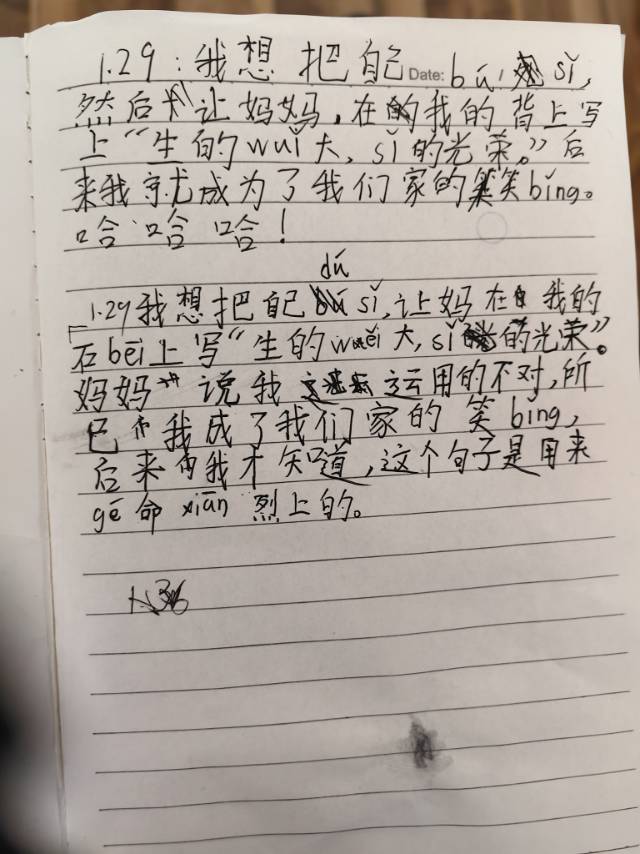 1.29:我想把自己Date:bú sǐ,
然后让妈妈,在我的背上写
上“生的wuǐ大,sǐ的光荣。”后
来我就成为了我们家的笑bǐng。
哈哈哈!
dú
1.29我想把自己sǐ,让妈在我的
石bēi上写“生的wěi大,sǐ的光荣”。
妈妈说我运用的不对,所
已我成了我们家的笑bing,
后来我才知道,这个句子是用来
gē命xiān烈上的。